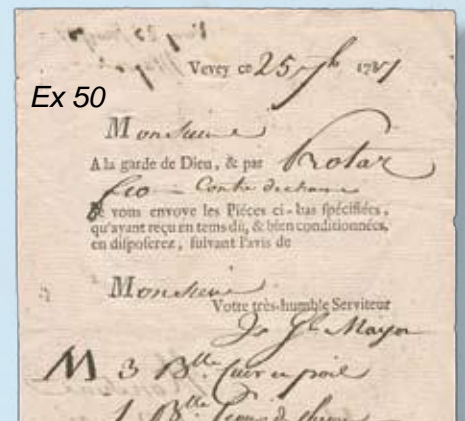 Vevey ce 25 7b 1787
Ex 50
Monsieur
A la garde de Dieu, & par Rotar
Contre
Je vous envoye les Piéces ci-bas spécifiées,
qu'ayant reçu en tems dû, & bien conditionnées,
en disposerez, suivant l'avis de
Monsieur
Votre très-humble Serviteur
Mayor
M 3 Blle Cuir en poil
1 Blle